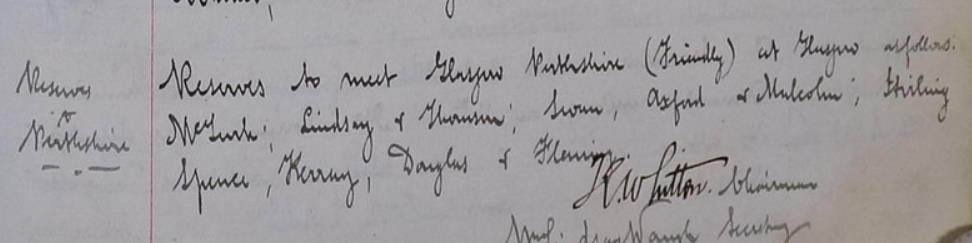 Reserves
to
Perthshire
Reserves to meet Glasgow Perthshire (Friendly) at Glasgow as follows:
McGurk; Lindsay & Thomson; Swan, Oxford & Malcolm; Stirling
Spence, Kerray, Douglas & Fleming.
Chairman
Secretary